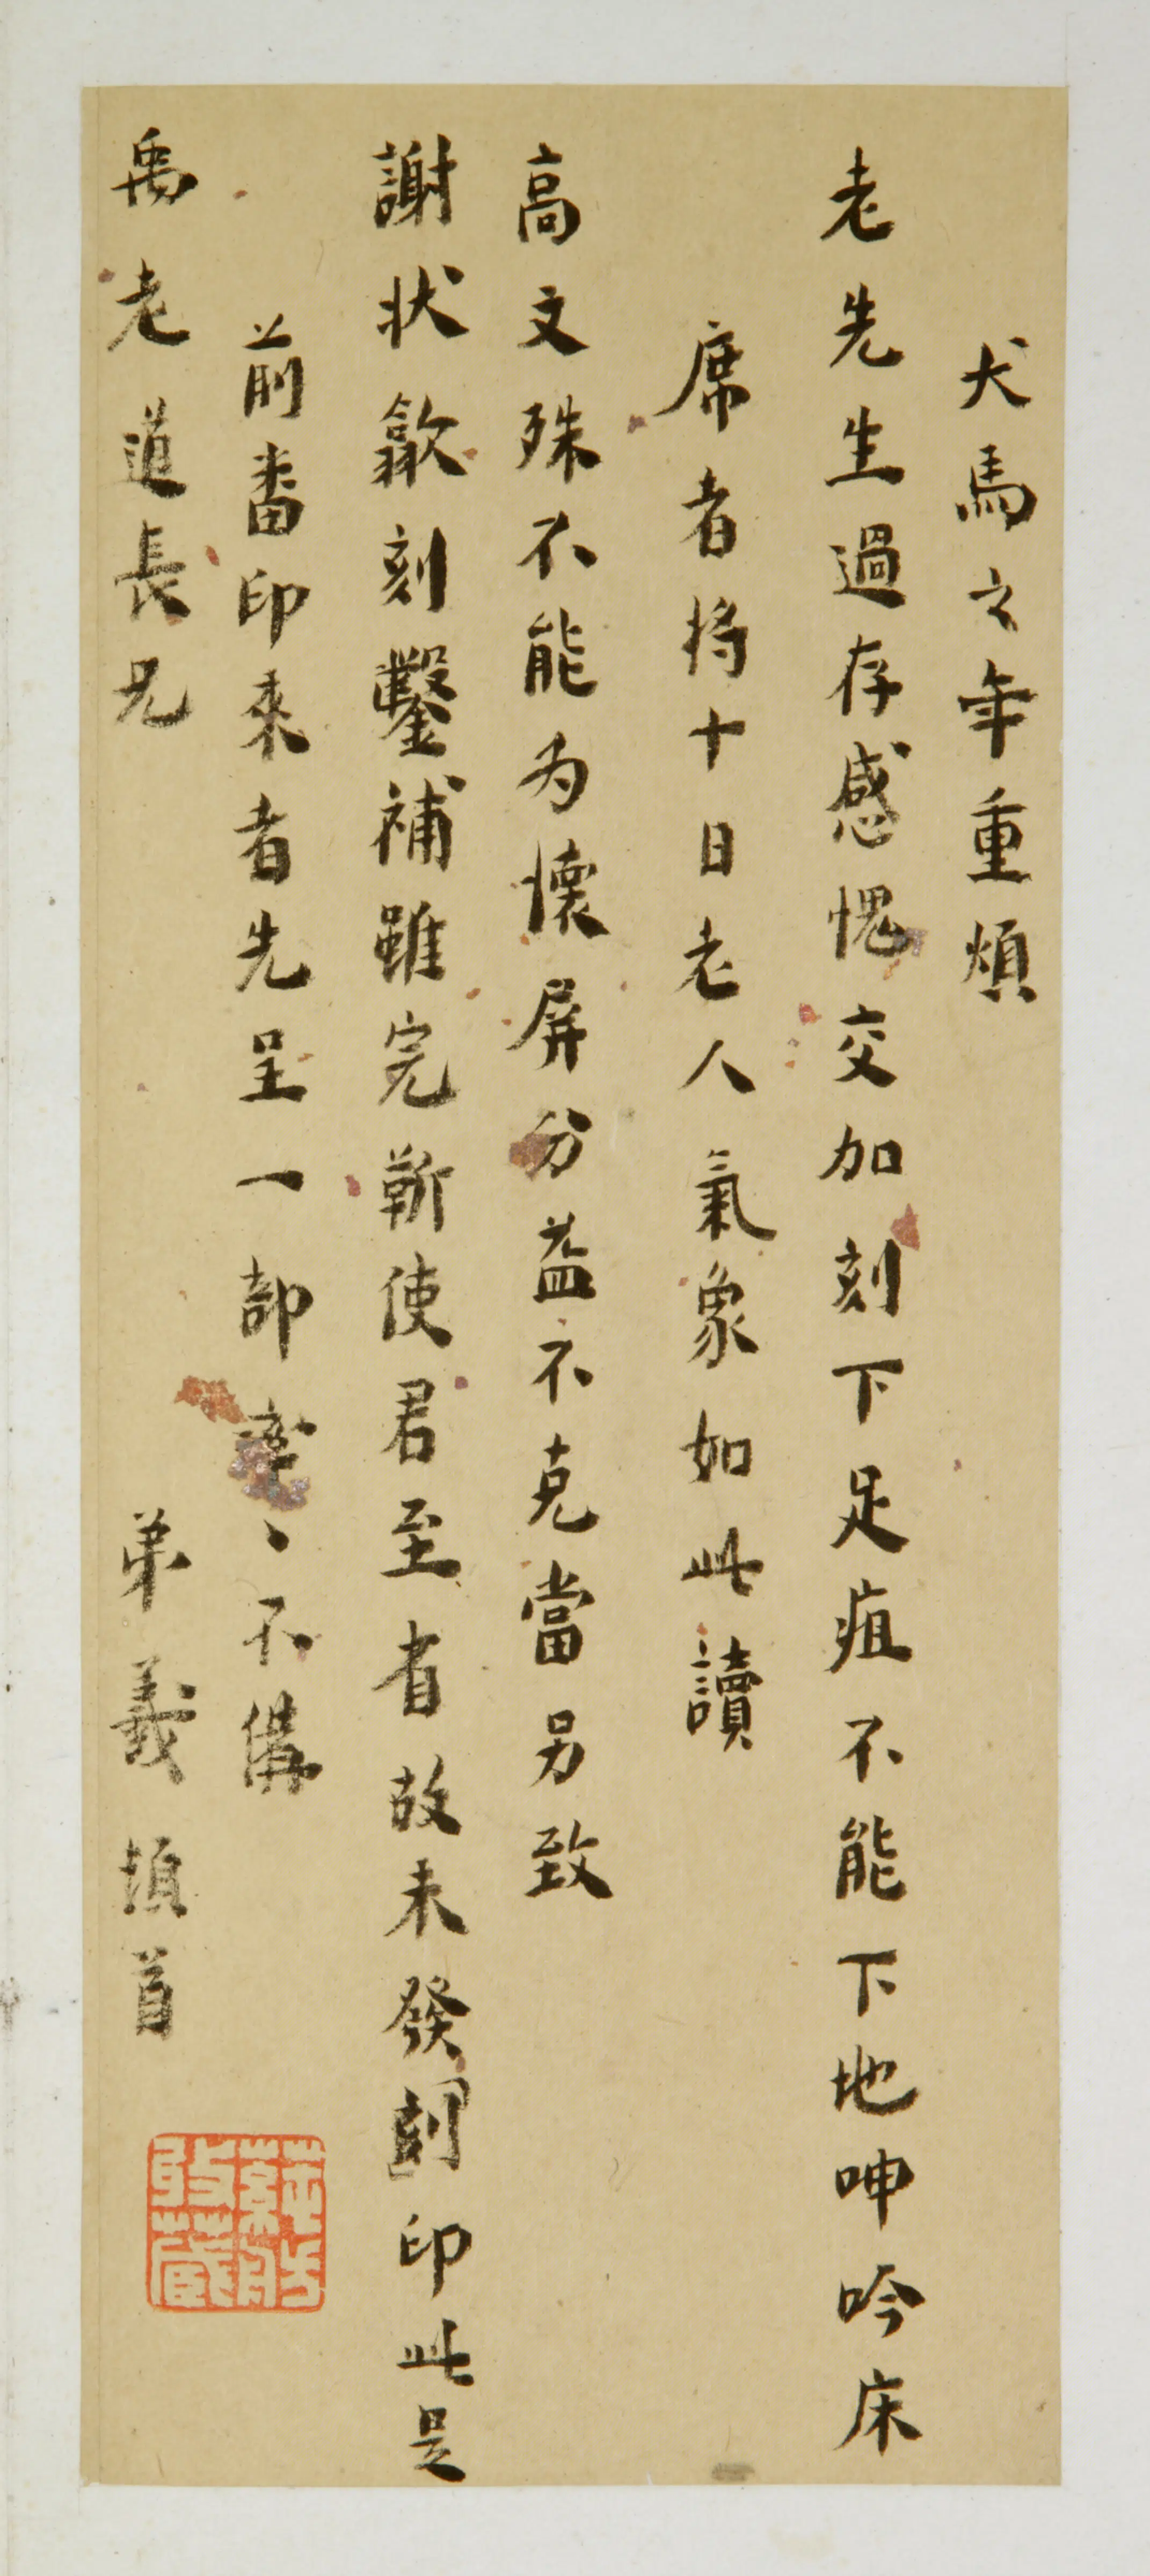 犬馬之年重煩
老先生過存感愧交加刻下足疽不能下地呻吟床
席者將十日老人氣象如此讀
高文殊不能為懷屏分益不克當另致
謝狀歙刻鑿補雖完靳使君至省故未發刻印此是
前番印來者先呈一部率、不備
禹老道長兄
弟義頓首